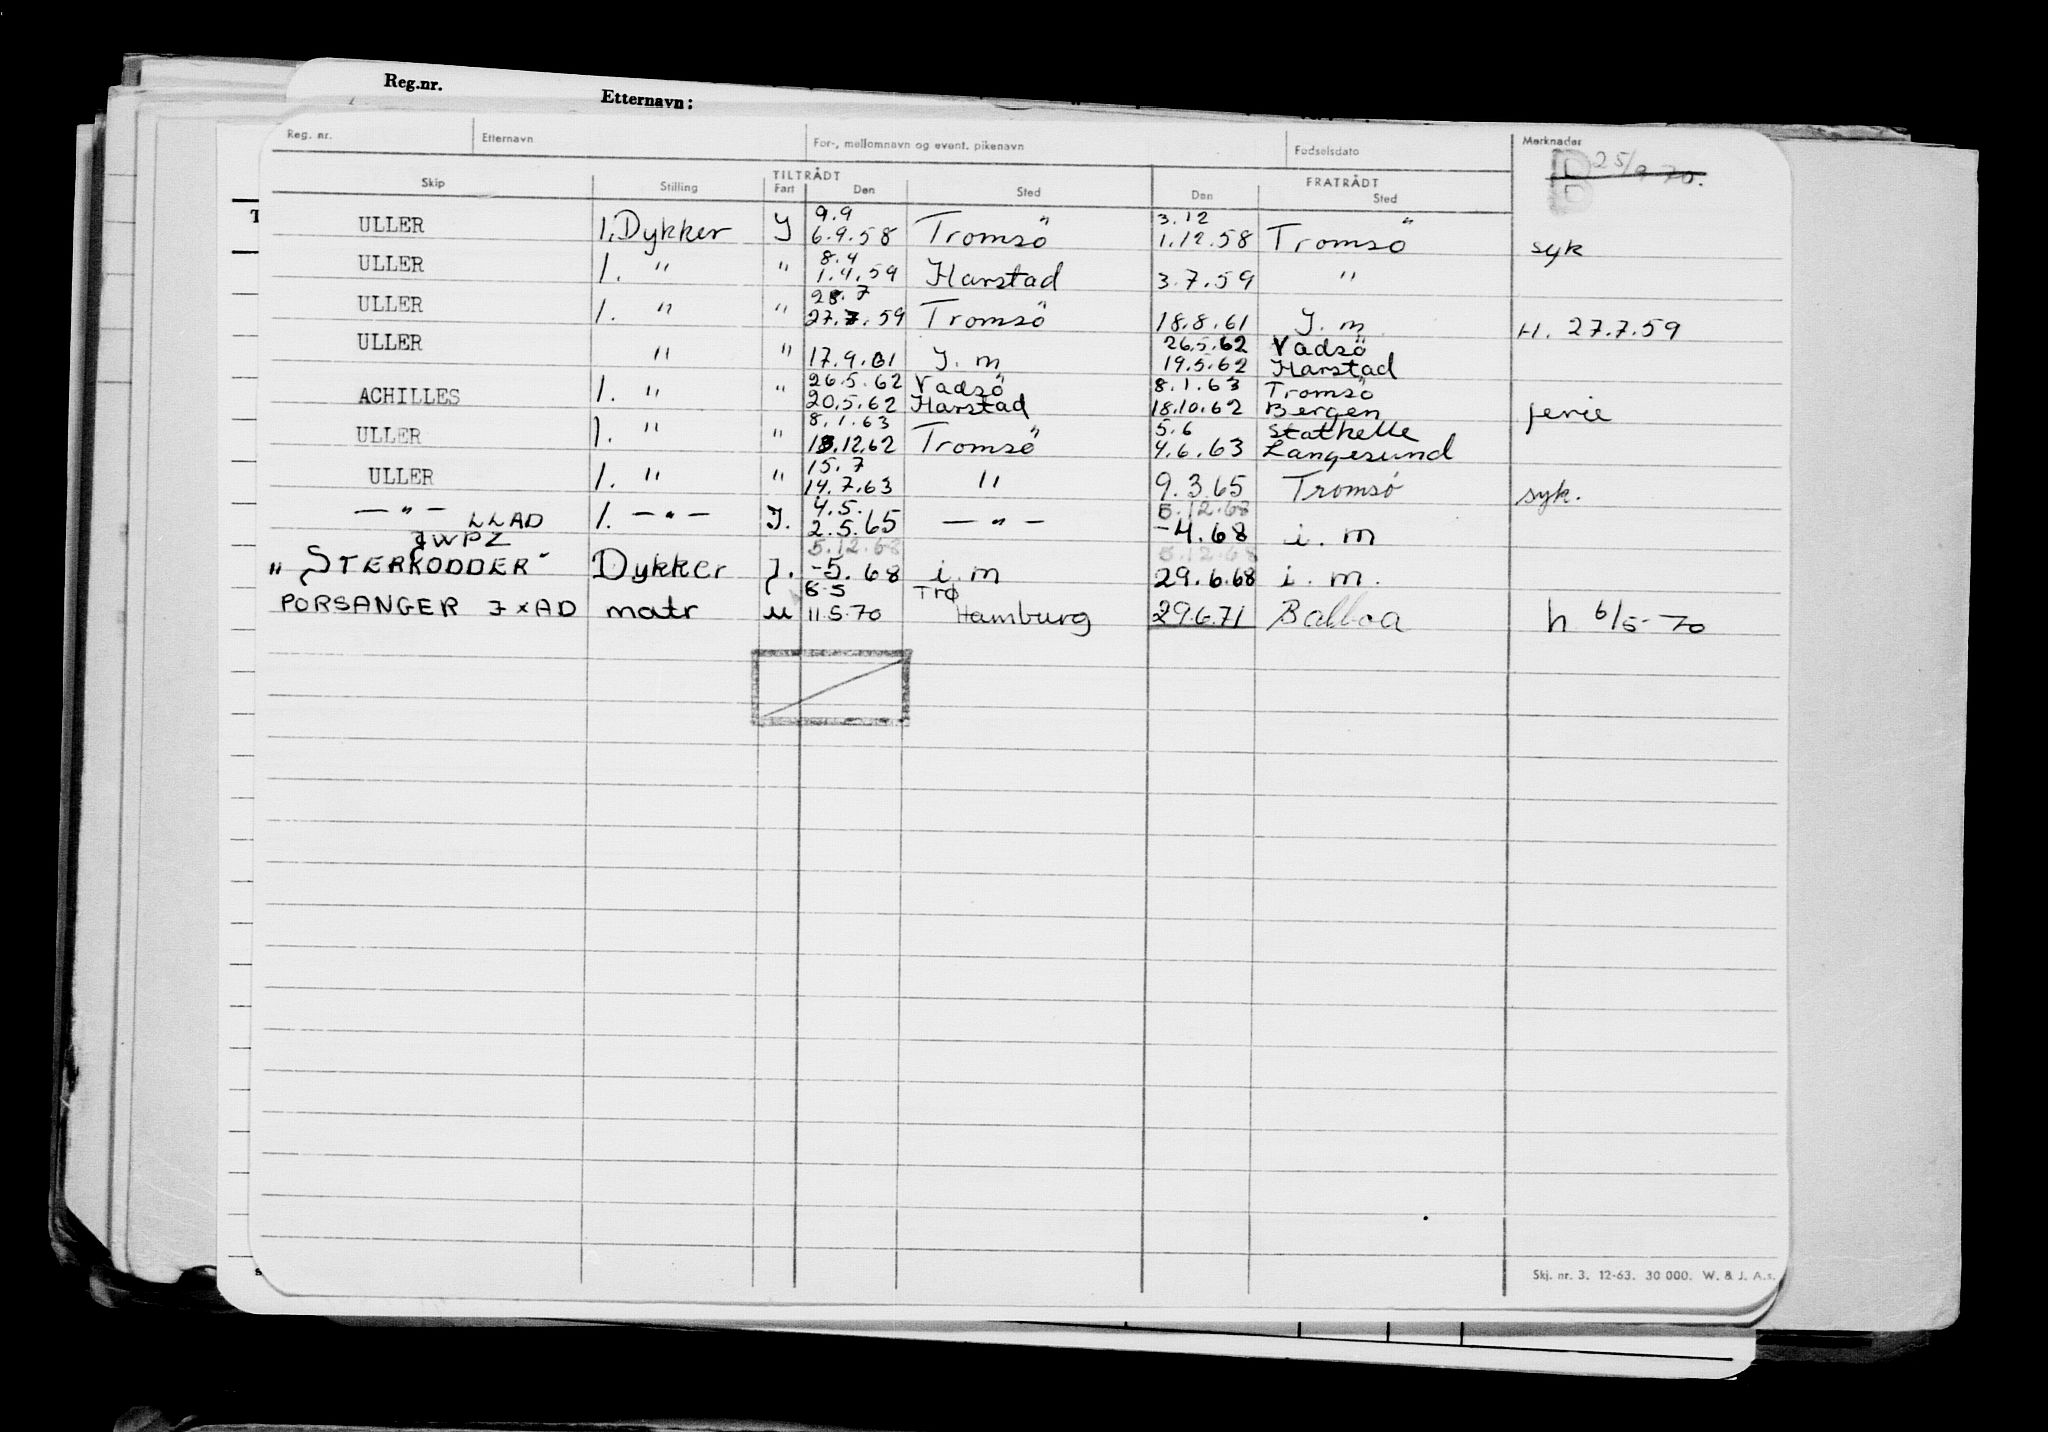 Reg.nr. Etternavn:
Reg. nr. Etternavn For-, mellomnavn og event. pikenavn Fødselsdato Merknader
25/9 70.
TILTRÅDT FRATRÅDT
Skip Stilling Fart Den Sted Den Sted
9.9 3.12
ULLER 1. Dykker J 6.9.58 Tromsö 1.12.58 Tromsö syk
8.4
ULLER 1. " " 1.4.59 Harstad 3.7.59 "
28.7
ULLER 1. " " 27.7.59 Tromsö 18.8.61 J. m H. 27.7.59
26.5.62 Vadsö
ULLER " " 17.9.61 J. m 19.5.62 Harstad
26.5.62 Vadsö 8.1.63 Tromsö
ACHILLES 1. " " 20.5.62 Harstad 18.10.62 Bergen ferie
8.1.63 5.6 Stathelle
ULLER 1. " " 18.12.62 Tromsö 4.6.63 Langesund
15.7
ULLER 1. " " 14.7.63 " 9.3.65 Tromsö syk.
4.5. 5.12.68
— " — LLAD 1. — " — J. 2.5.65 — " — -4.68 i. m
JWPZ 5.12.68 5.12.68
"STERKODDER" Dykker J. -5.68 i. m 29.6.68 i. m.
6-5 Trø
PORSANGER J×AD matr u 11.5.70 Hamburg 29.6.71 Balboa h 6/5-70
Skj. nr. 3. 12-63. 30 000. W. & J. A.s.